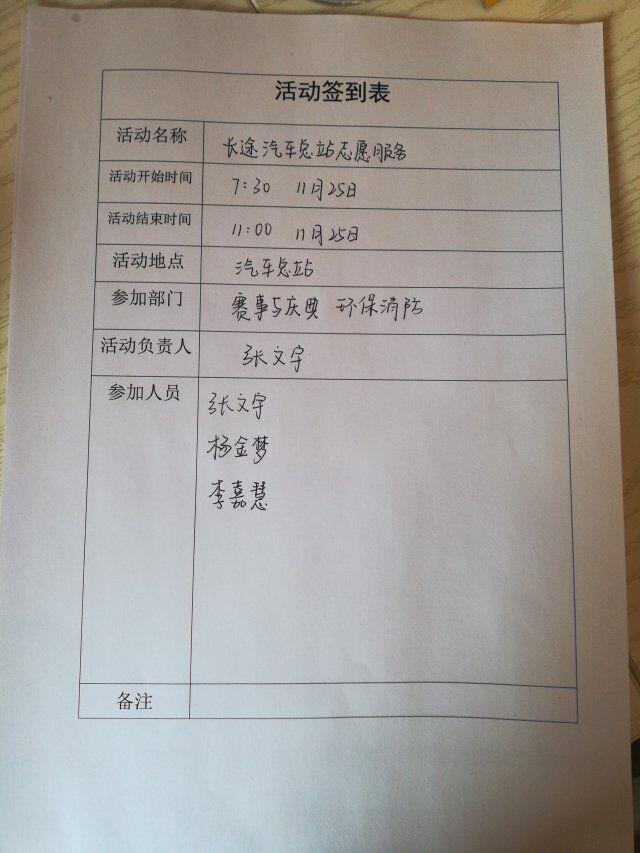 活动签到表
活动名称 长途汽车总站志愿服务
活动开始时间 7:30 11月25日
活动结束时间 11:00 11月25日
活动地点 汽车总站
参加部门 赛事与庆典 环保消防
活动负责人 张文宇
参加人员 张文宇
杨金梦
李嘉慧
备注